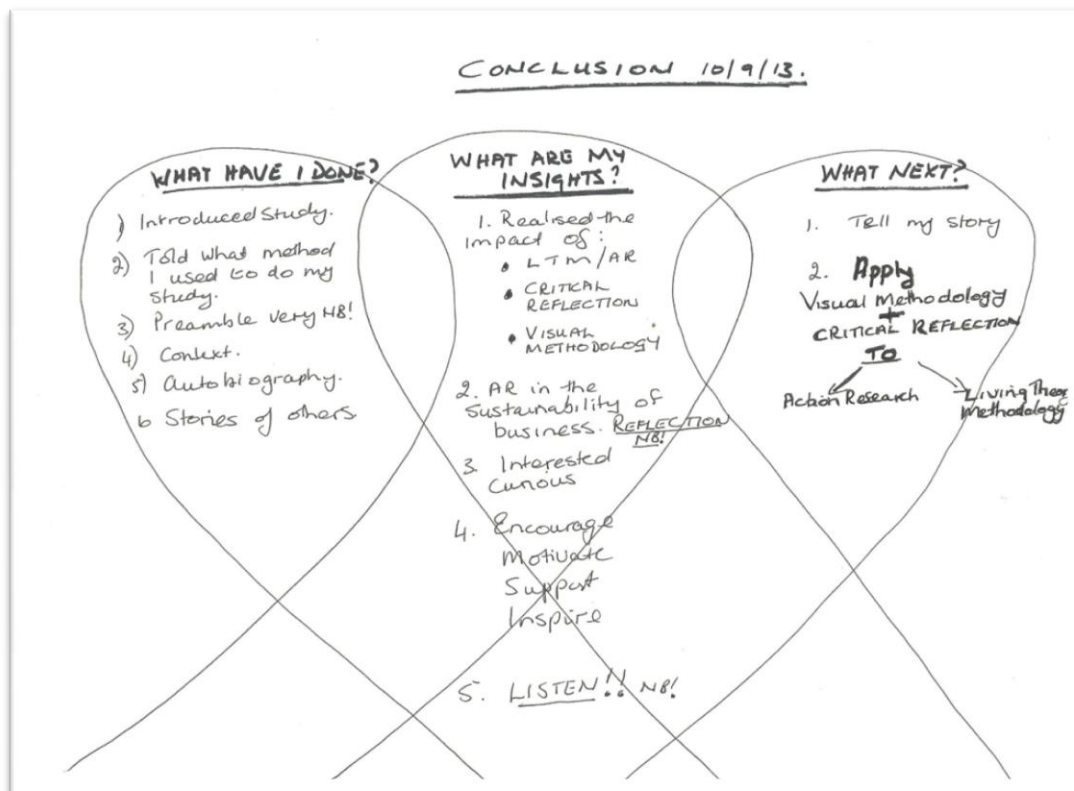 CONCLUSION 10/9/13.
WHAT HAVE I DONE?
1) Introduced Study.
2) Told what method
I used to do my
study.
3) Preamble very NB!
4) Context.
5) Autobiography.
6 Stories of others
WHAT ARE MY
INSIGHTS?
1. Realised the
impact of:
• LTM/AR
• CRITICAL
REFLECTION
• VISUAL
METHODOLOGY
2. AR in the
Sustainability of
business. REFLECTION
NB!
3 Interested
Curious
4. Encourage
Motivate
Support
Inspire
5. LISTEN!! NB!
WHAT NEXT?
1. Tell my story
2. Apply
Visual Methodology
+
CRITICAL REFLECTION
TO
Action Research
Living Theory
Methodology